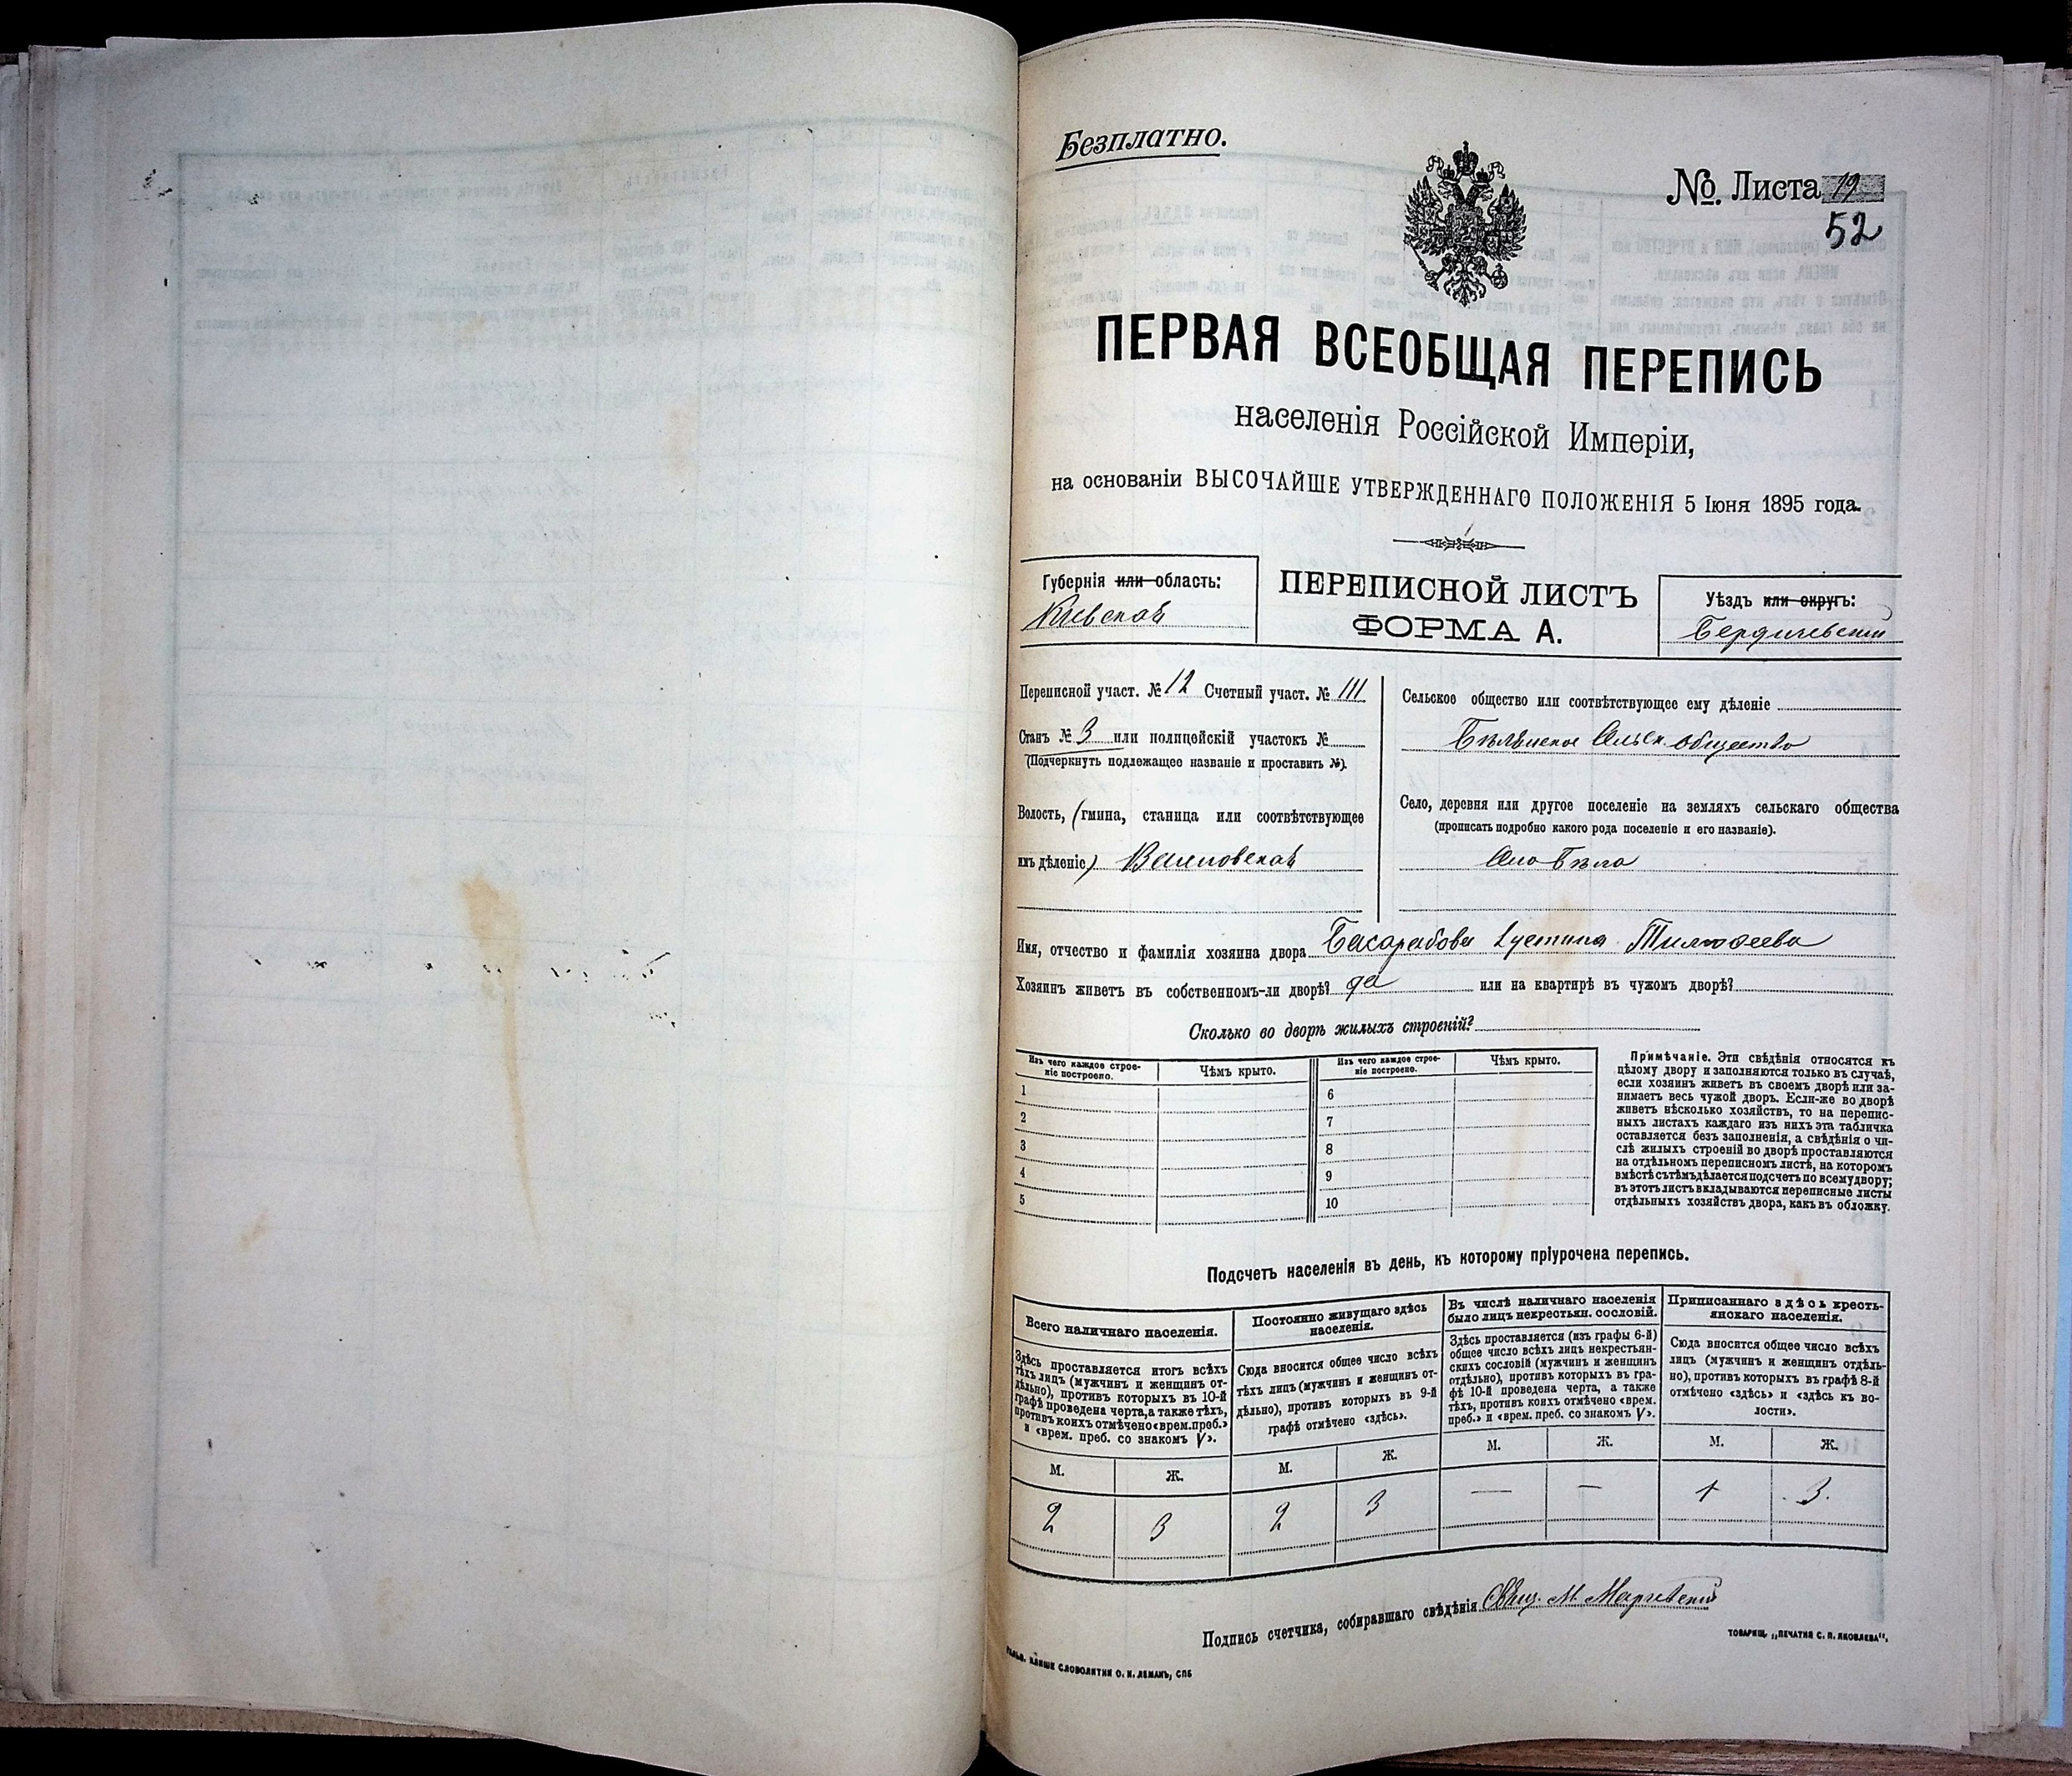 Безплатно.
№. Листа 19
52
ПЕРВАЯ ВСЕОБЩАЯ ПЕРЕПИСЬ
населенія Россійской Имперіи,
на основаніи ВЫСОЧАЙШЕ УТВЕРЖДЕННАГО ПОЛОЖЕНІЯ 5 Іюня 1895 года.
Губернія или область:
Кіевская
ПЕРЕПИСНОЙ ЛИСТЪ
ФОРМА А.
Уѣздъ или округъ:
Бердичевскій
Переписной участ. № 12 Счетный участ. № III
Станъ № 3 или полицейскій участокъ №
(Подчеркнуть подлежащее названіе и проставить №).
Волость, (гмина, станица или соотвѣтствующее
имъ дѣленіе)
Сельское общество или соотвѣтствующее ему дѣленіе
Бѣлѣвское Сельск. общество
Село, деревня или другое поселеніе на земляхъ сельскаго общества
(прописать подробно какого рода поселеніе и его названіе).
Имя, отчество и фамилія хозяина двора Басарабова Устина Тимофеева
Хозяинъ живетъ въ собственномъ-ли дворѣ? да или на квартирѣ въ чужомъ дворѣ?
Сколько во дворѣ жилыхъ строеній?
Изъ чего каждое строе-
ніе построено.
Чѣмъ крыто.
Изъ чего каждое строе-
ніе построено.
Чѣмъ крыто.
1
2
3
4
5
6
7
8
9
10
Примѣчаніе. Эти свѣдѣнія относятся къ
цѣлому двору и заполняются только въ случаѣ,
если хозяинъ живетъ въ своемъ дворѣ или за-
нимаетъ весь чужой дворъ. Если-же во дворѣ
живетъ нѣсколько хозяйствъ, то на перепис-
ныхъ листахъ каждаго изъ нихъ эта табличка
оставляется безъ заполненія, а свѣдѣнія о чи-
слѣ жилыхъ строеній во дворѣ проставляются
на отдѣльномъ переписномъ листѣ, на которомъ
вмѣстѣ съ тѣмъ дѣлается подсчетъ по всему двору;
въ этотъ листъ вкладываются переписные листы
отдѣльныхъ хозяйствъ двора, какъ въ обложку.
Подсчетъ населенія въ день, къ которому пріурочена перепись.
Всего наличнаго населенія.
Здѣсь проставляется итогъ всѣхъ
тѣхъ лицъ (мужчинъ и женщинъ от-
дѣльно), противъ которыхъ въ 10-й
графѣ проведена черта, а также тѣхъ,
противъ коихъ отмѣчено «врем. преб.»
и «врем. преб. со знакомъ V».
М.
Ж.
2
3
Постоянно живущаго здѣсь
населенія.
Сюда вносится общее число всѣхъ
тѣхъ лицъ (мужчинъ и женщинъ от-
дѣльно), противъ которыхъ въ 9-й
графѣ отмѣчено «здѣсь».
М.
Ж.
2
3
Въ числѣ наличнаго населенія
было лицъ некрестьян. сословій.
Здѣсь проставляется (изъ графы 6-й)
общее число всѣхъ лицъ некрестьян-
скихъ сословій (мужчинъ и женщинъ
отдѣльно), противъ которыхъ въ гра-
фѣ 10-й проведена черта, а также
тѣхъ, противъ коихъ отмѣчено «врем.
преб.» и «врем. преб. со знакомъ V».
М.
Ж.
—
—
Приписаннаго здѣсь кресть-
янскаго населенія.
Сюда вносится общее число всѣхъ
лицъ (мужчинъ и женщинъ отдѣль-
но), противъ которыхъ въ графѣ 8-й
отмѣчено «здѣсь» и «здѣсь къ во-
лости».
М.
Ж.
1
3.
Подпись счетчика, собиравшаго свѣдѣнія Свящ. М.
ТОВАРИЩ. „ПЕЧАТНЯ С. П. ЯКОВЛЕВА".
КЛИШЕ СЛОВОЛИТНИ О. И. ЛЕМАНЪ, СПБ